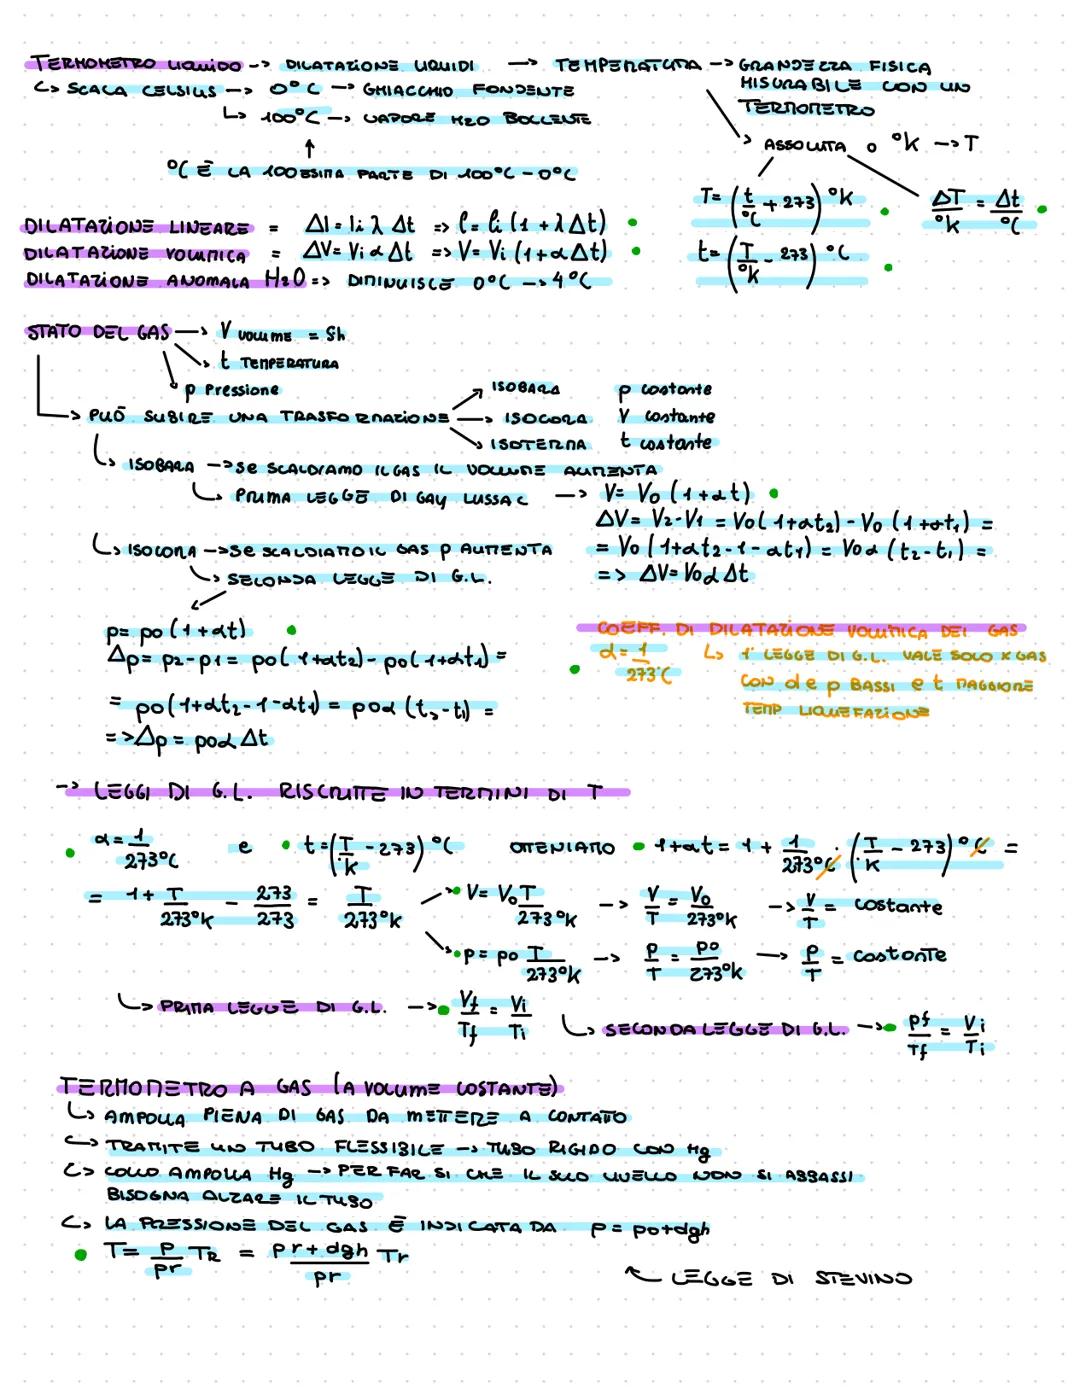 TERMOMETRO LIQUIDO -> DILATAZIONE LIQUIDI -> TEMPERATURA -> GRANDEZZA FISICA
MISURABILE CON UN
TERMOMETRO
↳ SCALA CELSIUS -> 0°C -> GHIACCHIO FONDENTE
↳ 100°C -> VAPORE H2O BOLLENTE
↑
°C È LA 100ESIMA PARTE DI 100°C - 0°C
> ASSOLUTA o °K -> T
T = (t/°C + 273) °K
ΔT/°K = Δt/°C
t = (T/°K - 273) °C
DILATAZIONE LINEARE = Δl = li λ Δt => l = li (1 + λΔt)
DILATAZIONE VOLUMICA = ΔV = Vi α Δt => V = Vi (1 + αΔt)
DILATAZIONE ANOMALA H2O => DIMINUISCE 0°C -> 4°C
STATO DEL GAS -> V VOLUME = Sh
t TEMPERATURA
p Pressione
-> PUÒ SUBIRE UNA TRASFORMAZIONE
ISOBARA p costante
-> ISOCORA V costante
ISOTERMA t costante
↳ ISOBARA -> Se SCALDIAMO IL GAS IL VOLUME AUMENTA
↳ PRIMA LEGGE DI GAY LUSSAC -> V = V0 (1 + αt)
ΔV = V2 - V1 = V0(1 + αt2) - V0 (1 + αt1) =
= V0 (1 + αt2 - 1 - αt1) = V0α (t2 - t1) =
=> ΔV = V0 α Δt
↳ ISOCORA -> Se SCALDIAMO IL GAS p AUMENTA
↳ SECONDA LEGGE DI G.L.
p = p0 (1 + αt)
Δp = p2 - p1 = p0(1 + αt2) - p0(1 + αt1) =
= p0(1 + αt2 - 1 - αt1) = p0α (t2 - t1) =
=> Δp = p0 α Δt
COEFF. DI DILATAZIONE VOLUMICA DEL GAS
α = 1/273°C ↳ 1° LEGGE DI G.L. VALE SOLO X GAS
CON d e p BASSI e t MAGGIORE
TEMP LIQUEFAZIONE
-> LEGGI DI G.L. RISCRITTE IN TERMINI DI T
α = 1/273°C e t = (T/°K - 273) °C OTTENIAMO 1 + αt = 1 + 1/273°C · (T/°K - 273) °C =
= 1 + T/273°K - 273/273 = T/273°K -> V = V0 T/273°K -> V/T = V0/273°K -> V/T = costante
p = p0 T/273°K -> p/T = p0/273°K -> p/T = costante
↳ PRIMA LEGGE DI G.L. -> Vf/Tf = Vi/Ti
↳ SECONDA LEGGE DI G.L. -> pf/Tf = Vi/Ti
TERMOMETRO A GAS (A VOLUME COSTANTE)
↳ AMPOLLA PIENA DI GAS DA METTERE A CONTATTO
↳ TRAMITE UN TUBO FLESSIBILE -> TUBO RIGIDO CON Hg
↳ COLLO AMPOLLA Hg -> PER FAR SI CHE IL SUO LIVELLO NON SI ABBASSI
BISOGNA ALZARE IL TUBO
↳ LA PRESSIONE DEL GAS È INDICATA DA p = p0 + dgh
T = p/pr TR = pr + dgh/pr Tr
LEGGE DI STEVINO